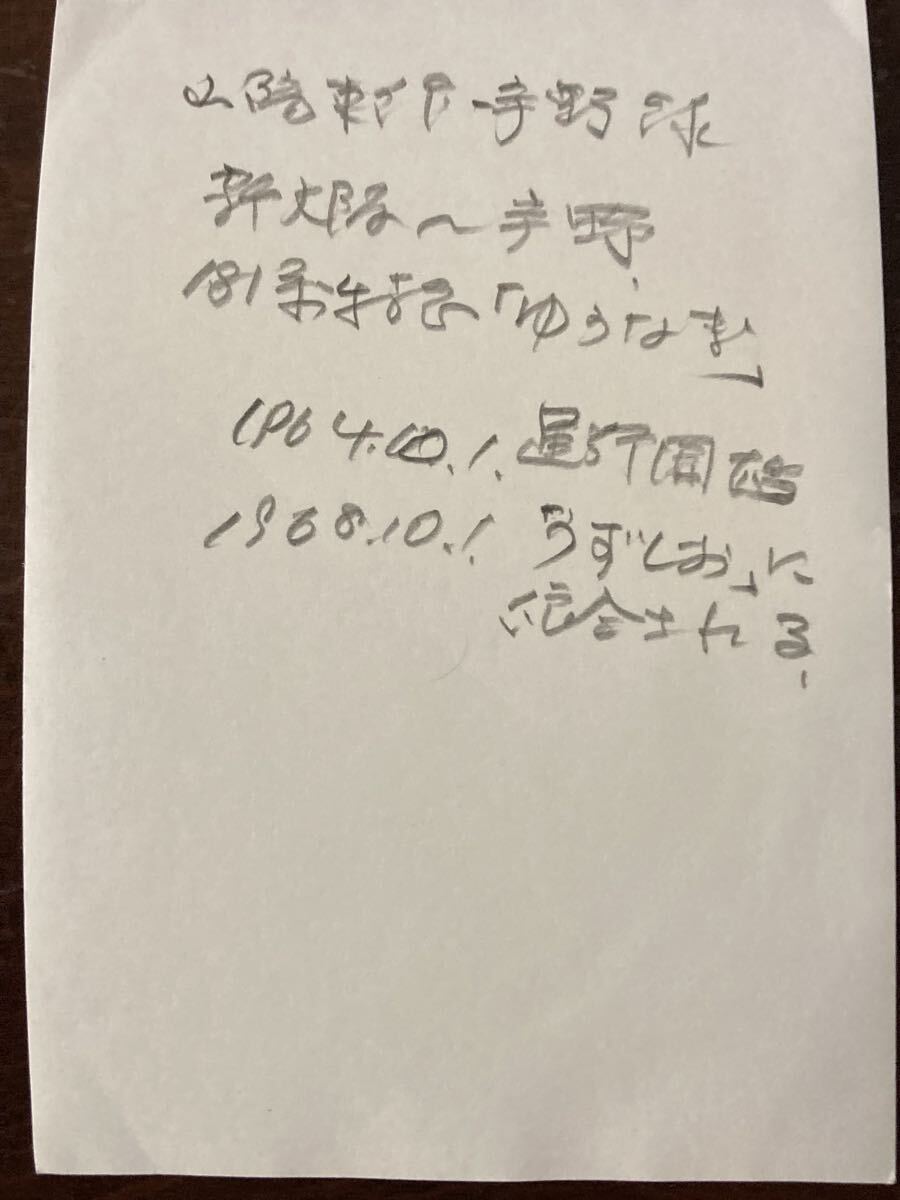 山陽新幹・宇野線
新大阪〜宇野
181系特急「ゆうなぎ」
1964.10.1.運行開始
1968.10.1.「うずしお」に
統合される